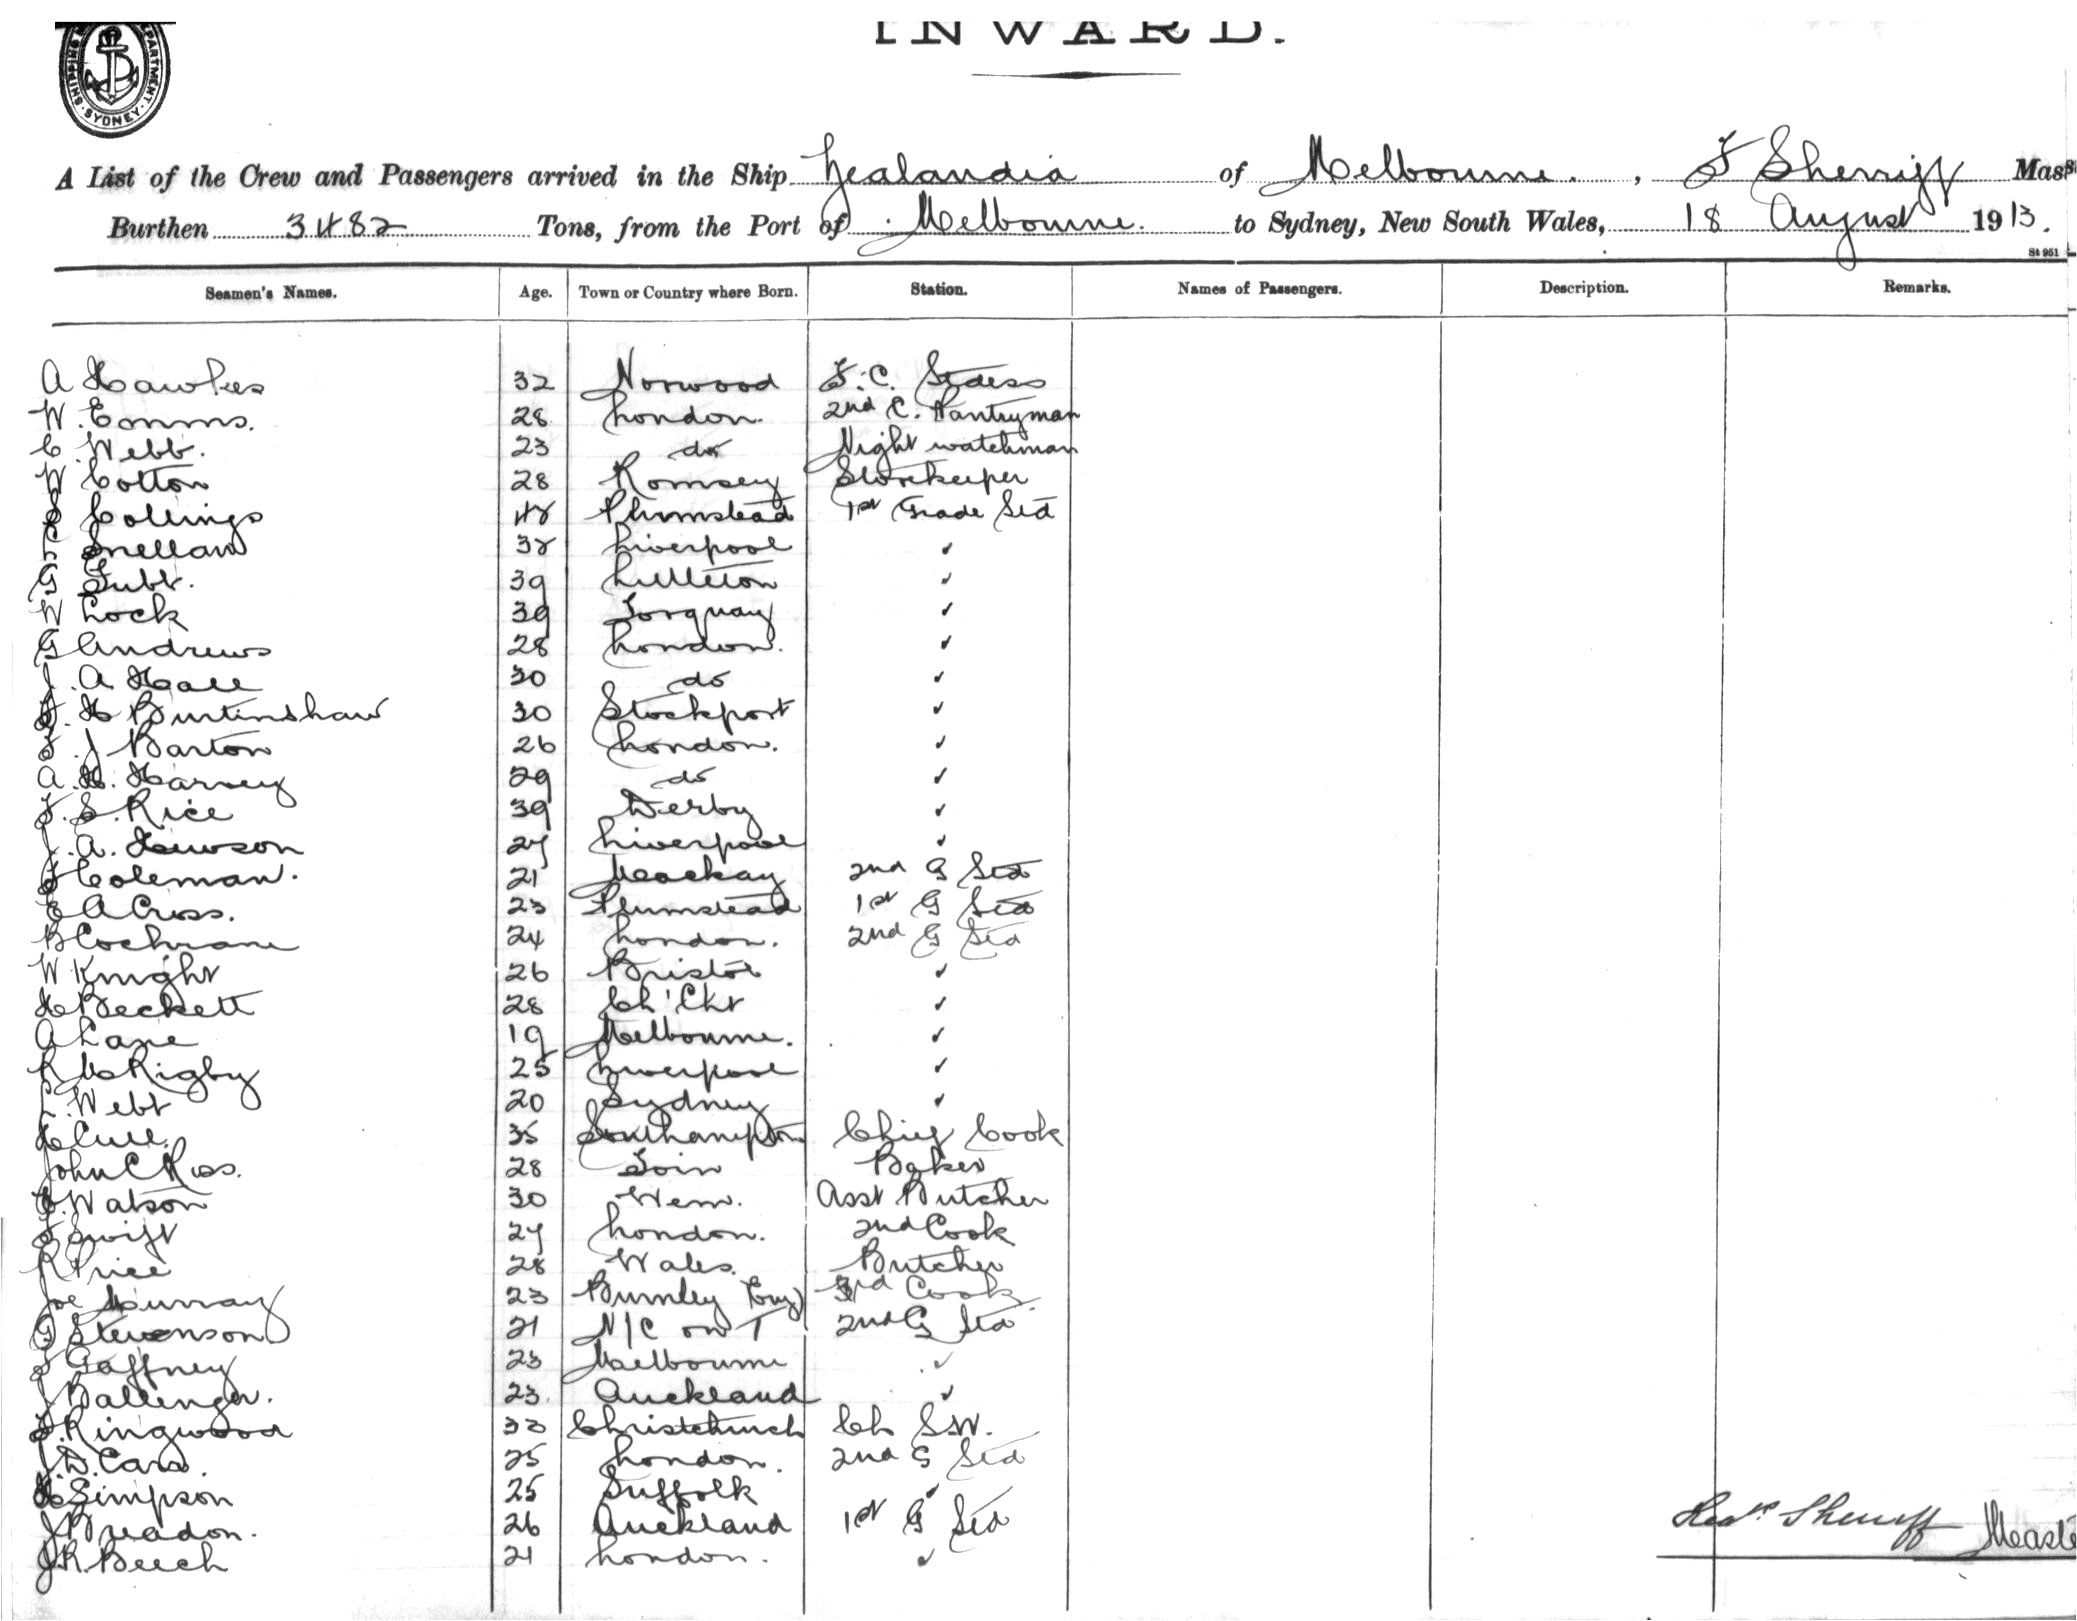 INWARD.
SHIPPING PARTMENT. SYDNEY
A List of the Crew and Passengers arrived in the Ship Zealandia of Melbourne, F Sherriff Mas
Burthen 3482 Tons, from the Port of Melbourne. to Sydney, New South Wales, 18 August 1913.
St 951
Seamen's Names. Age. Town or Country where Born. Station. Names of Passengers. Description. Remarks.
A Hawkes 32 Norwood F. C. Stdess
W. Emms. 28 London. 2nd C. Pantryman
C. Webb. 23 do Night watchman
W Cotton 28 Romsey Storekeeper
Collings 48 Plumstead 1st Grade Std
Snellan 38 Liverpool ✓
G Tubb. 39 ✓
W Lock 39 Torquay ✓
G Andrews 28 London. ✓
J. A Hall 30 do ✓
H Burtinshaw 30 Stockport ✓
F. J Barton 26 London. ✓
A. H. Harvey 29 do ✓
F. S. Rice 39 Derby ✓
J. A. Hewson 27 Liverpool ✓
Coleman. 21 Mackay 2nd G Std
E A Cross. 23 Plumstead 1st G Std
B Cochrane 24 London. 2nd G Std
W Knight 26 Bristol ✓
H Beckett 28 Ch'Ch ✓
A Lane 19 Melbourne. ✓
R Mc Rigby 25 Liverpool ✓
L. Webb 20 Sydney ✓
H Cull. 35 Southampton Chief Cook
John C Ross. 28 Baker
C. Watson 30 Wem. Asst Butcher
Swift 27 London. 2nd Cook
R Price 28 Wales. Butcher
Joe Murray 23 Burnley Eng 3rd Cook
G Stevenson 21 N/C on T 2nd G Std
Gaffney 23 Melbourne ✓
J Ballinger. 23 Auckland ✓
F. Ringwood 33 Christchurch Ch S.W.
J. D. Carr. 25 London. 2nd G Std
H Simpson 25 Suffolk ✓
J Breadon. 26 Auckland 1st G Std
J R. Beech 21 London. ✓
Fredk Sherriff Maste